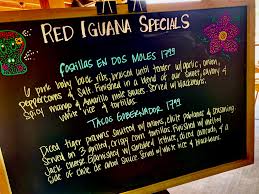 RED IGUANA SPECIALS
COSTILLAS EN DOS MOLES 17.99
6 pork baby back ribs, braised until tender w/garlic, onion,
peppercorns & salt. Finished in a blend of our sweet, savory &
spicy mango & Amarillo mole sauces. Served w/blackbeans,
white rice & tortillas.
TACOS GOBERNADOR 17.99
Diced tiger prawns sautéed w/onions, chile poblanos & seasoning.
Served on 3 grilled, crispy corn tortillas. Finished w/melted
Jack cheese. Garnished w/ shredded lettuce, diced avocado, &
side of chile de arbol sauce. Served w/white rice & blackbeans.